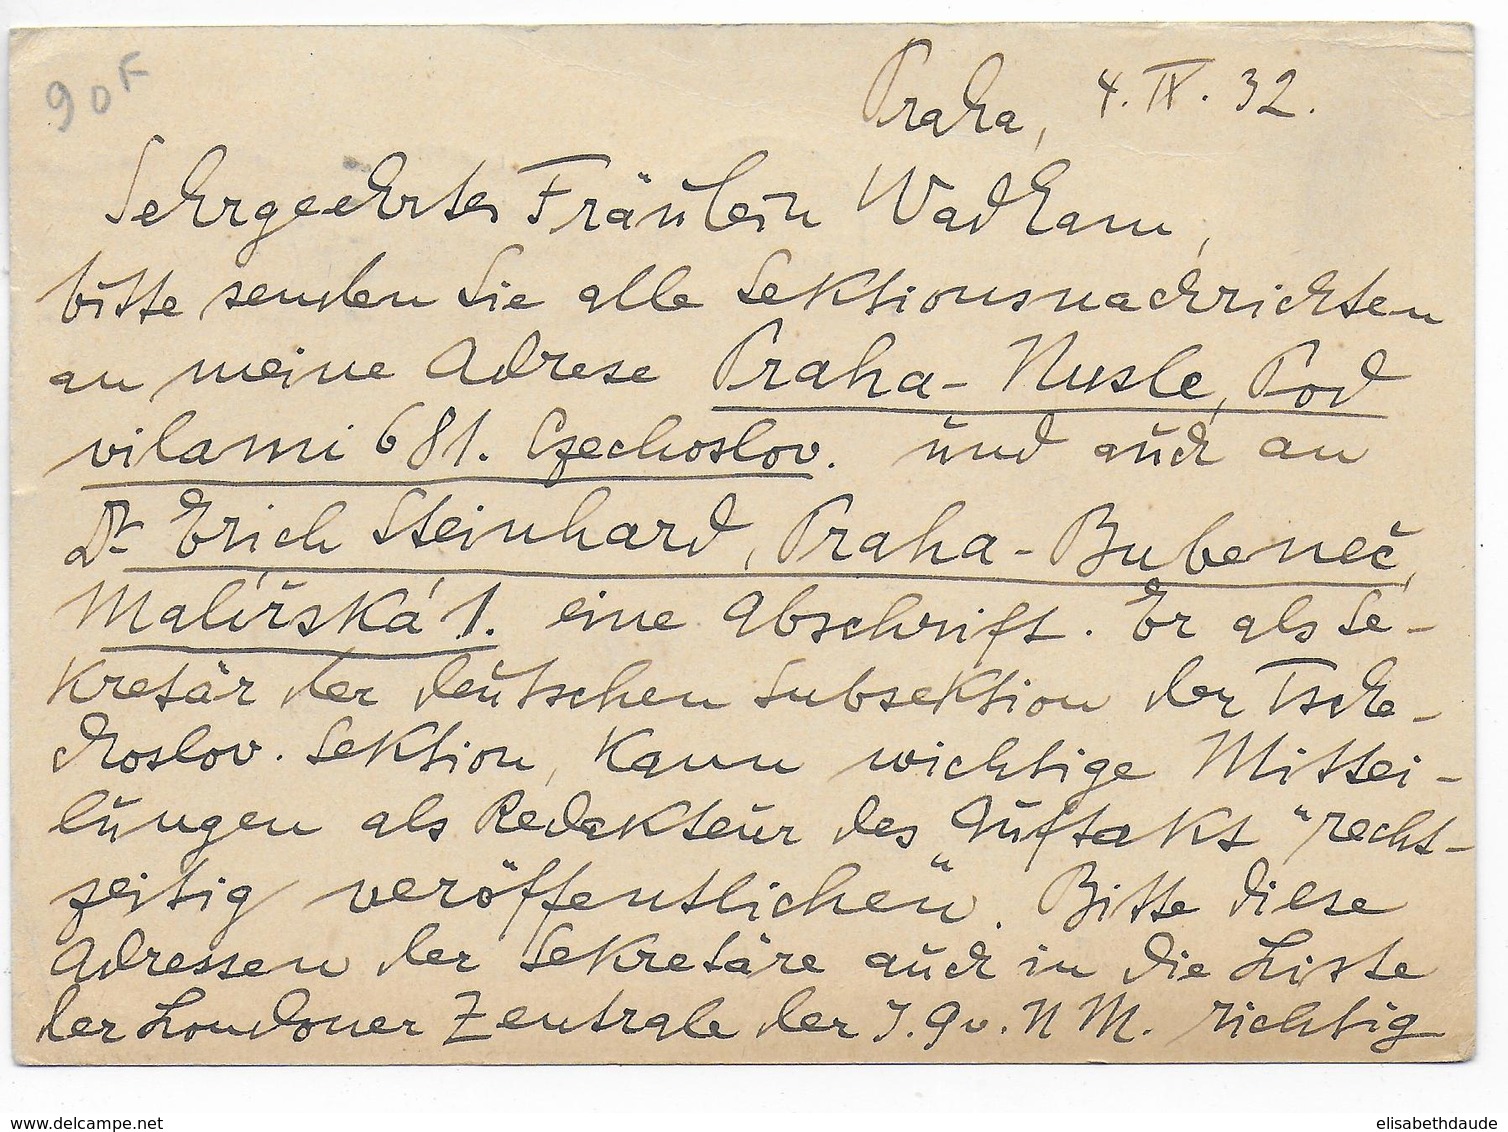 90F
Praha, 4. IX. 32.
Sehrgeehrtes Fräulein Wadham,
bitte senden Sie alle Sektionsnachrichten
an meine Adrese Praha-Nusle, Pod
vilami 681. Czechoslov. und auch an
Dr Erich Steinhard, Praha-Bubeneč,
Malířská 1. eine Abschrift. Er als Se-
kretär der deutschen Subsektion der Tsche-
choslov. Sektion, kann wichtige Mittei-
lungen als Redakteur des „Auftakt" recht-
zeitig veröffentlichen. Bitte diese
Adressen der Sekretäre auch in die Liste
der Londoner Zentrale der I.G v. N M. richtig
www.delcampe.net
elisabethdaude